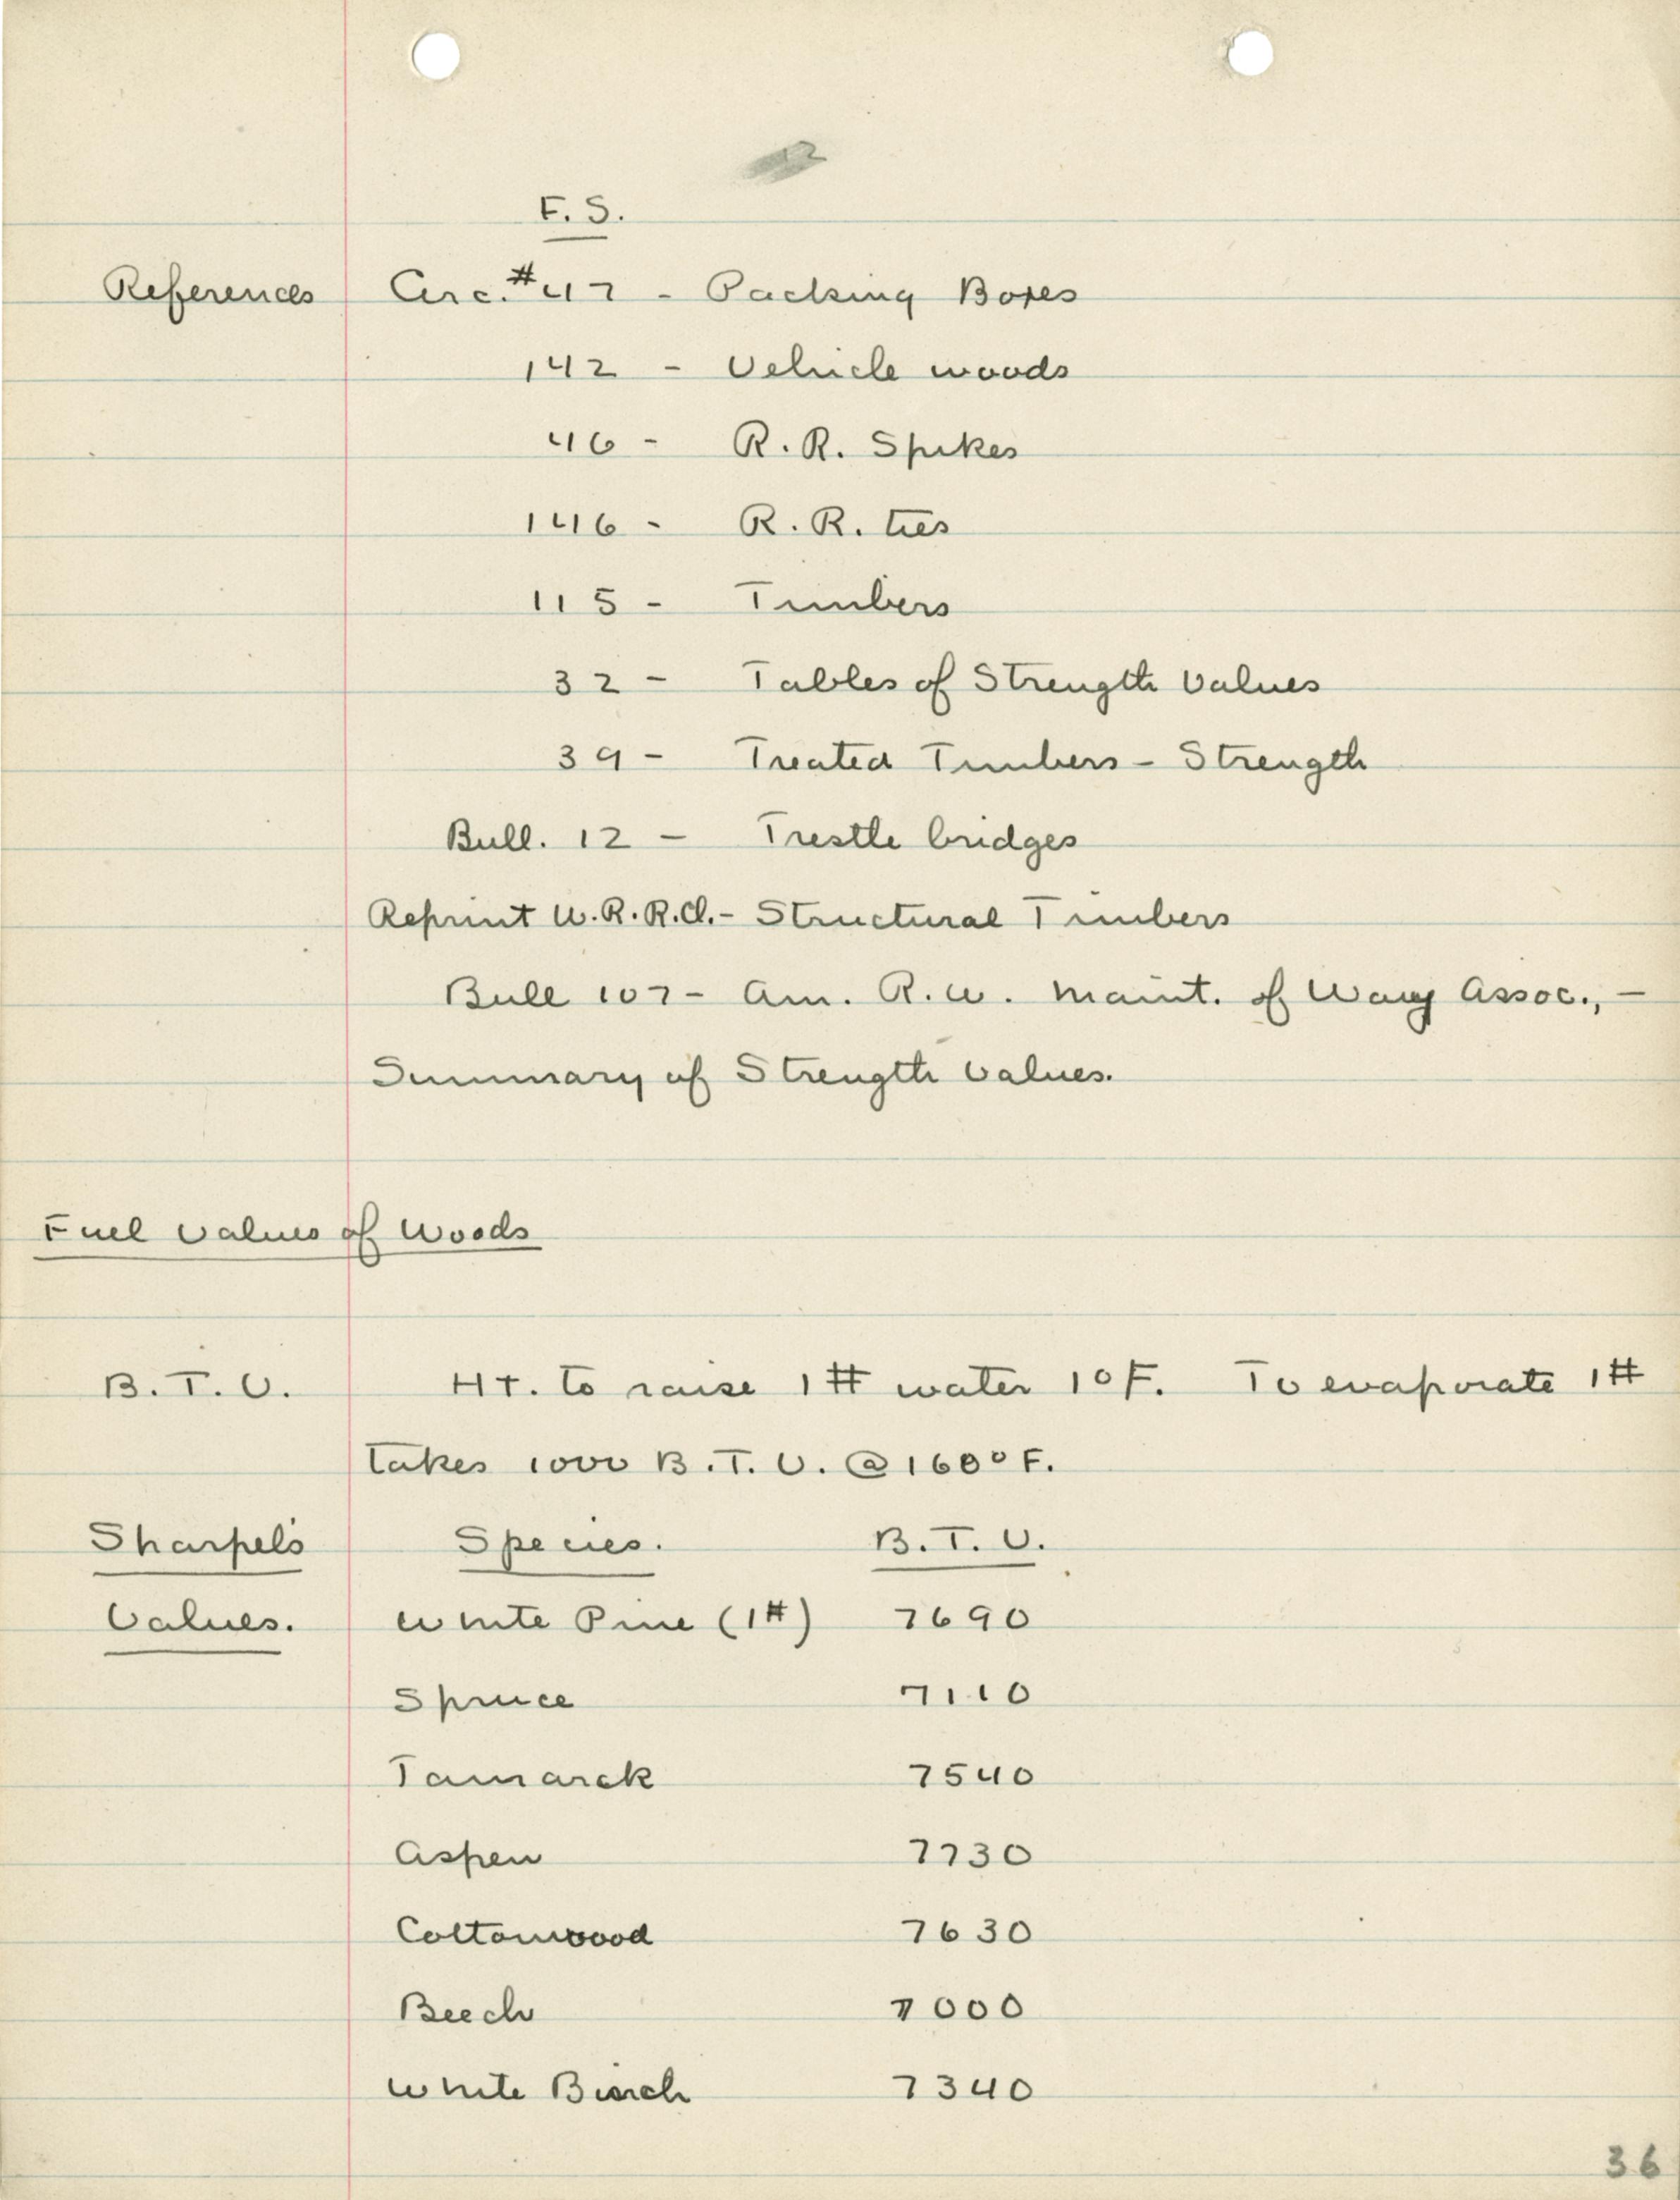 F. S.
References Circ. #47 - Packing Boxes
142 - Vehicle woods
46 - R. R. Spikes
146 - R. R. ties
115 - Timbers
32 - Tables of Strength Values
39 - Treated Timbers - Strength
Bull. 12 - Trestle bridges
Reprint W. R. R. C. - Structural Timbers
Bull 107 - Am. R. W. Maint. of Way Assoc., -
Summary of Strength Values.
Fuel Values of Woods
B. T. U. HT. to raise 1# water 1°F. To evaporate 1#
takes 1000 B. T. U. @ 1600°F.
Sharpels Species. B. T. U.
Values. White Pine (1#) 7690
Spruce 7110
Tamarck 7540
Aspen 7730
Cottonwood 7630
Beech 7000
White Birch 7340
36